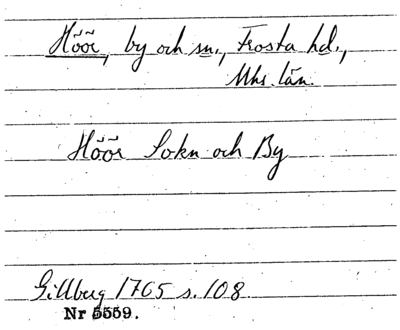 Höör, by och sn., Frosta hd.,
Mhs. län.
Höör Sokn och By
Gillberg 1765 s. 108
Nr 5559.